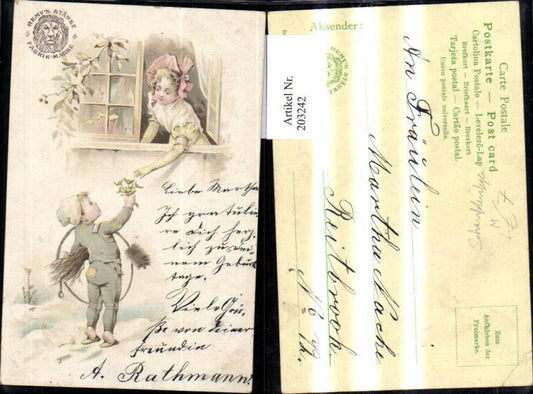 REMY'S STÄRKE
FABRIK-MARKE
Liebe Martha
Ich gratulie
re Dich herz
lich zu dei
nem Geburts
tage.
Viele Grü
ße von Deiner
Freundin
A. Rathmann.
Artikel Nr.
203242
Absender:
REMY'S STÄRKE
Carte Postale
Postkarte — Post card
Cartolina Postale — Levelező-Lap
Brefkort — Briefkaart — Brevkort
Tarjeta postal — Cartão postal.
Union postale universelle.
An Fräulein
Martha Nache
Reitbrook
Zum
Aufkleben der
Freimarke.